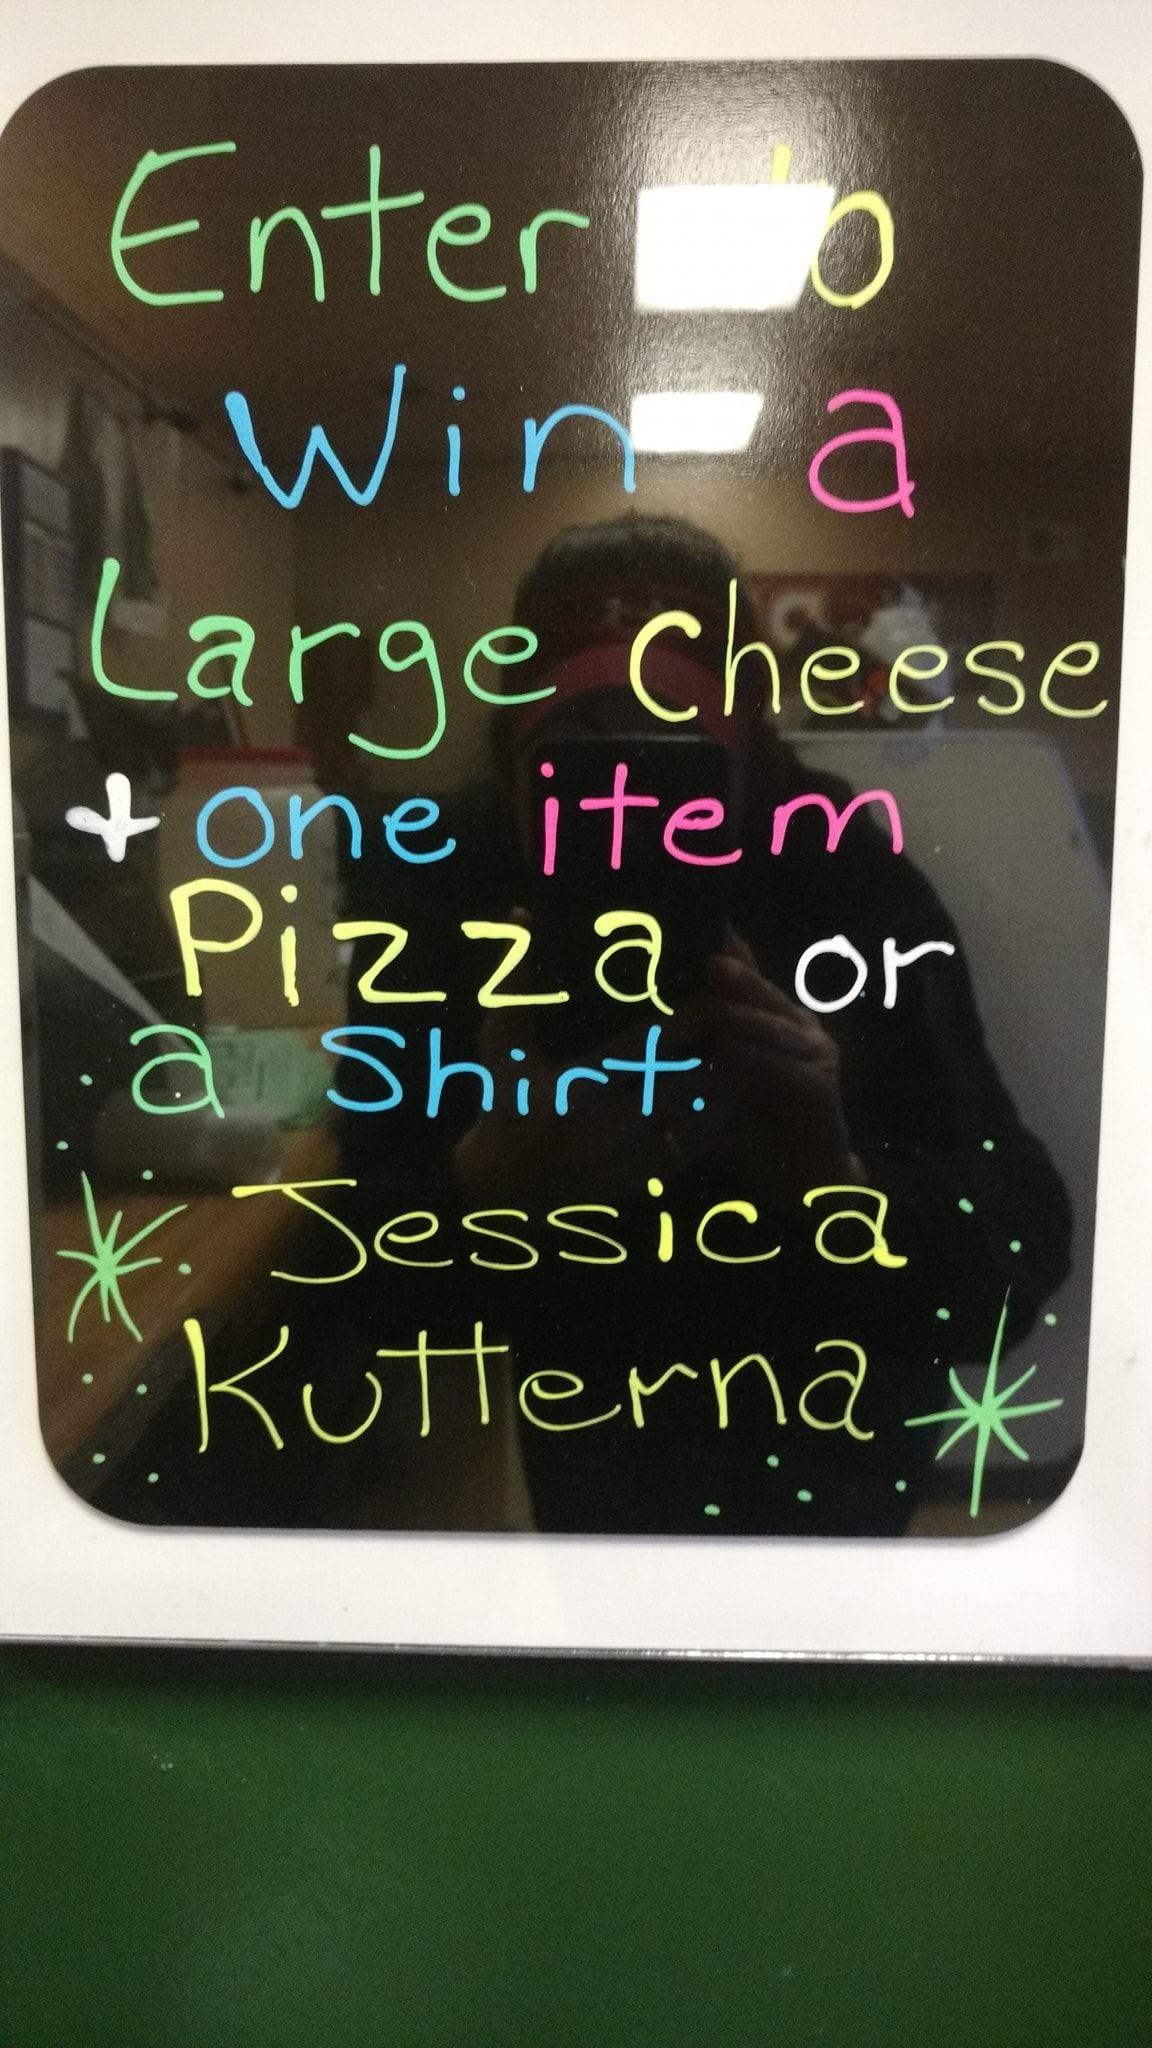 Enter to
Win a
Large Cheese
+ one item
Pizza or
a Shirt.
Jessica
Kutterna